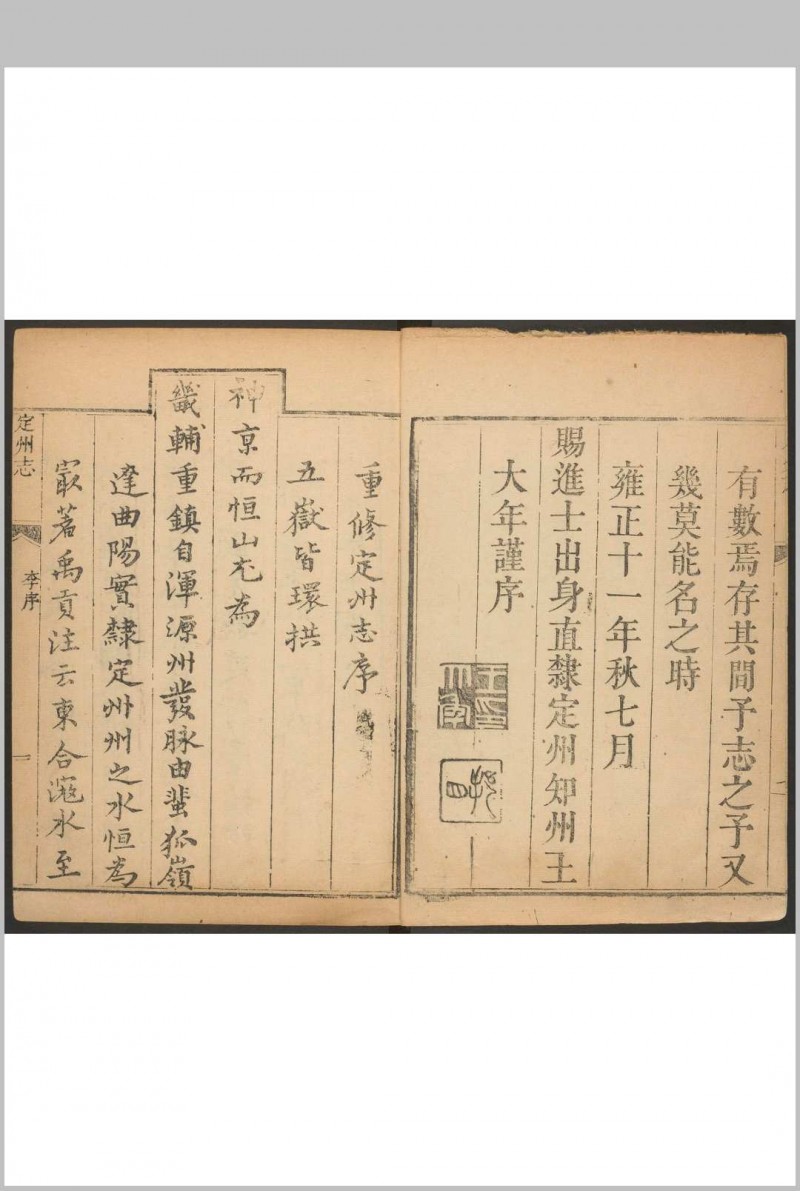 有數焉存其間予志之予又
幾莫能名之時
雍正十一年秋七月
賜進士出身直隸定州知州王
大年謹序
重修定州志序
五嶽皆環拱
神京而恒山尤為
畿輔重鎮自渾源州發脉由蜚狐嶺
達曲陽實隸定州州之水恒為
㝡著禹貢注云東合滱水至
定州志
李序
一